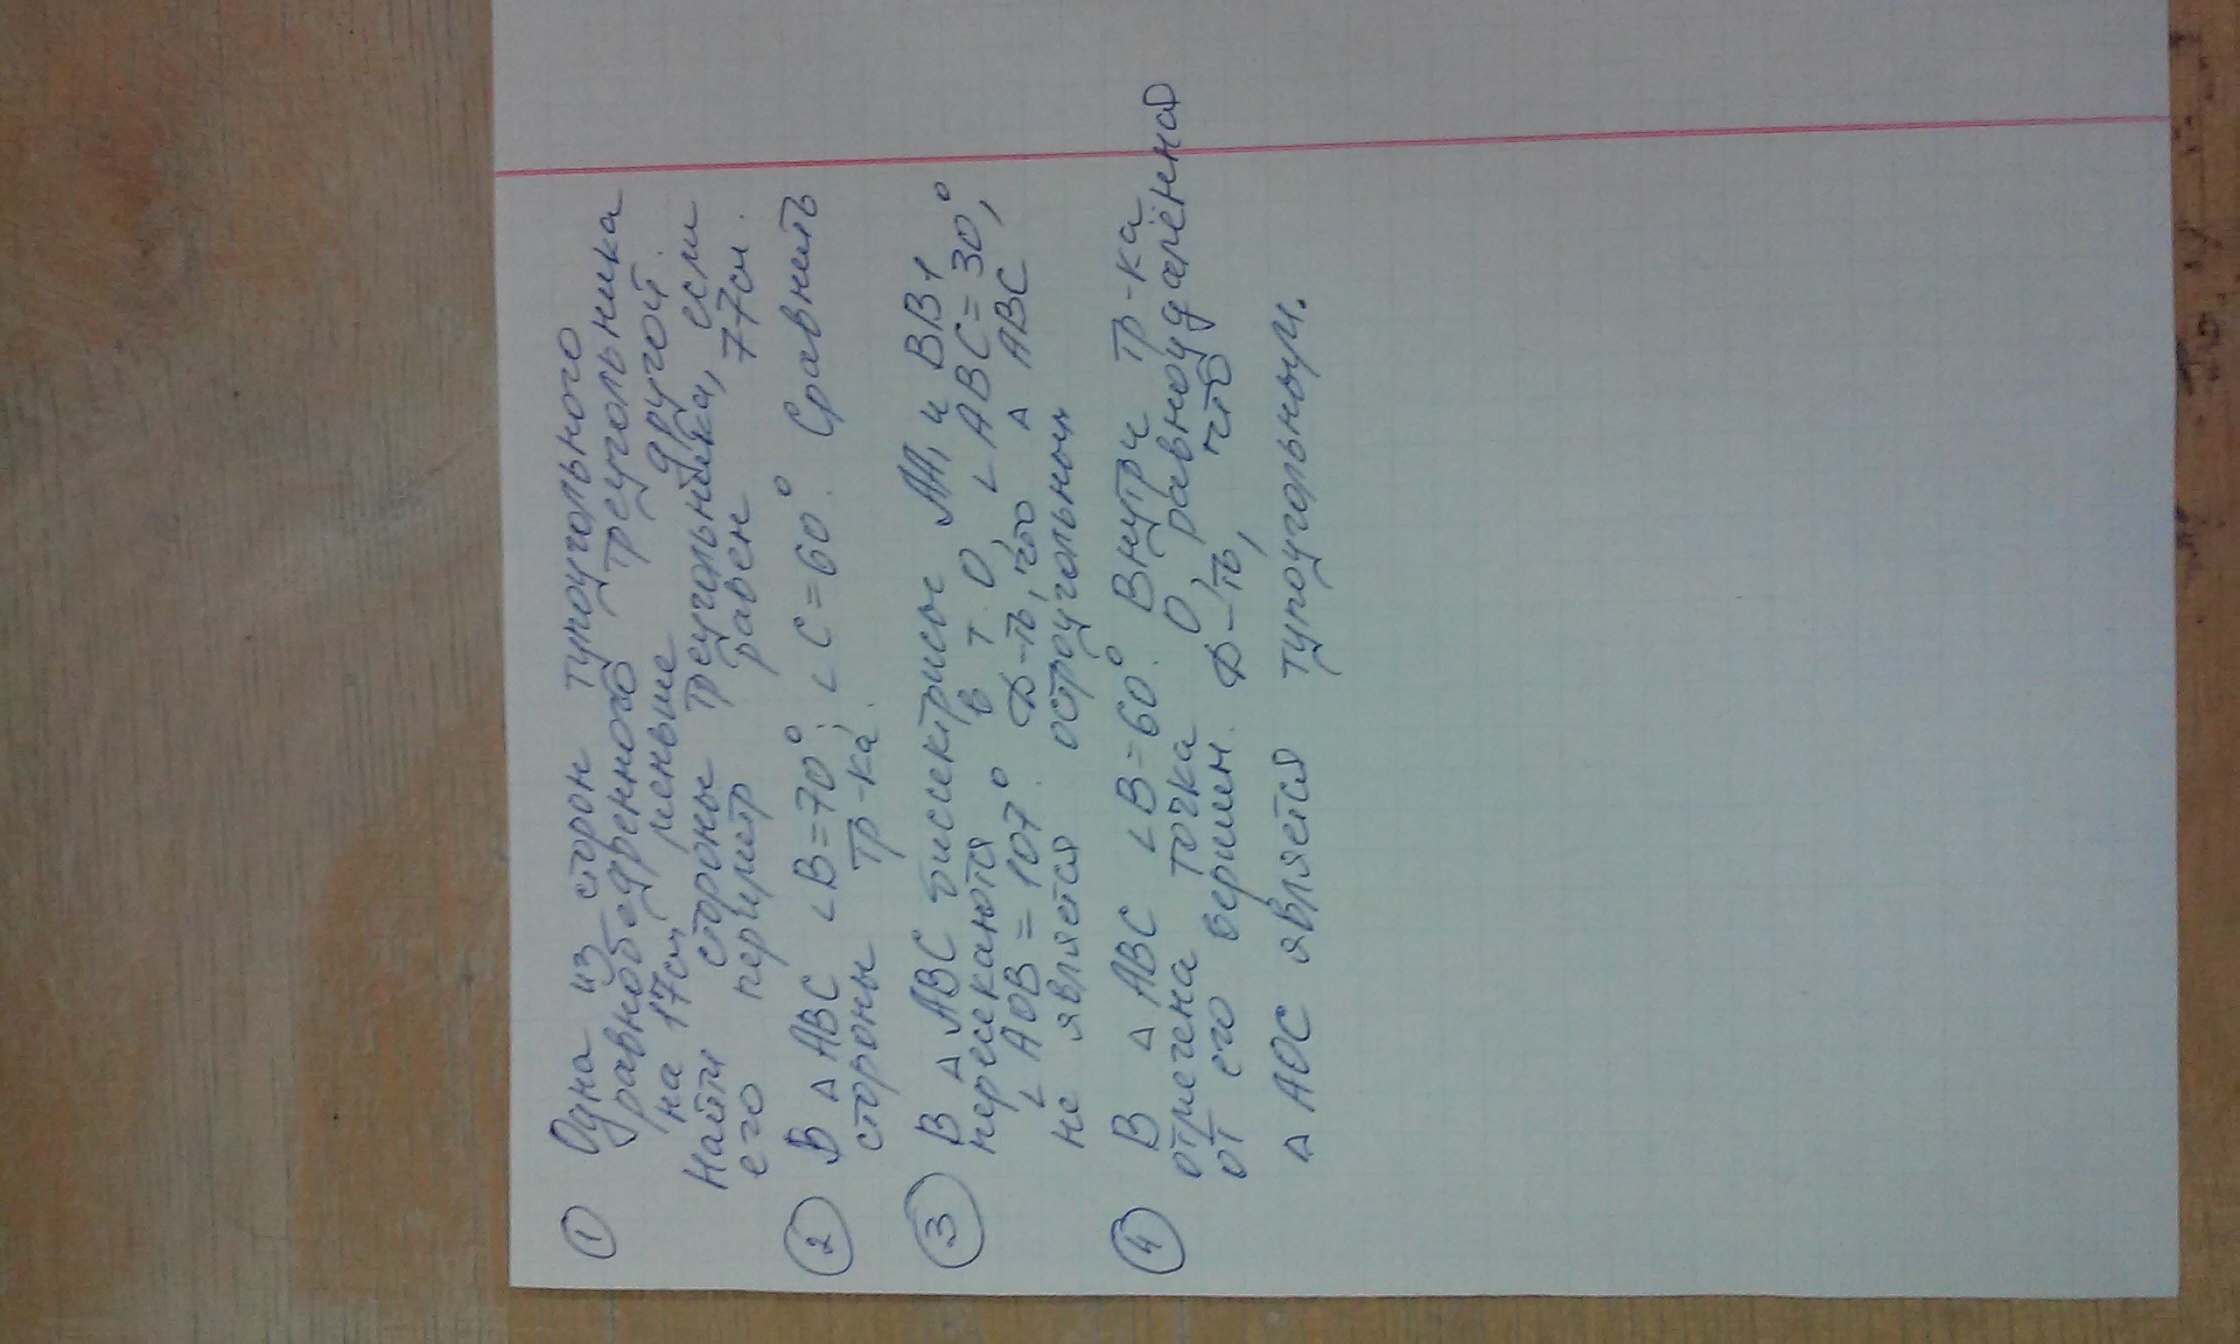 ① Одна из сторон тупоугольного
равнобедренного треугольника
на 17см меньше другой.
Найти стороны треугольника, если
его периметр равен 77см.
② В △ АВС ∠В=70°; ∠С=60°. Сравнить
стороны тр-ка.
③ В △ АВС биссектрисы АА₁ и ВВ1
пересекаются в т. О, ∠АВС=30°,
∠АОВ=107°. Д-ть, что △ АВС
не является остроугольным
④ В △ АВС ∠В=60°. Внутри тр-ка
отмечена точка О, равноудалённая
от его вершин. Д-ть, что
△ АОС является тупоугольным.